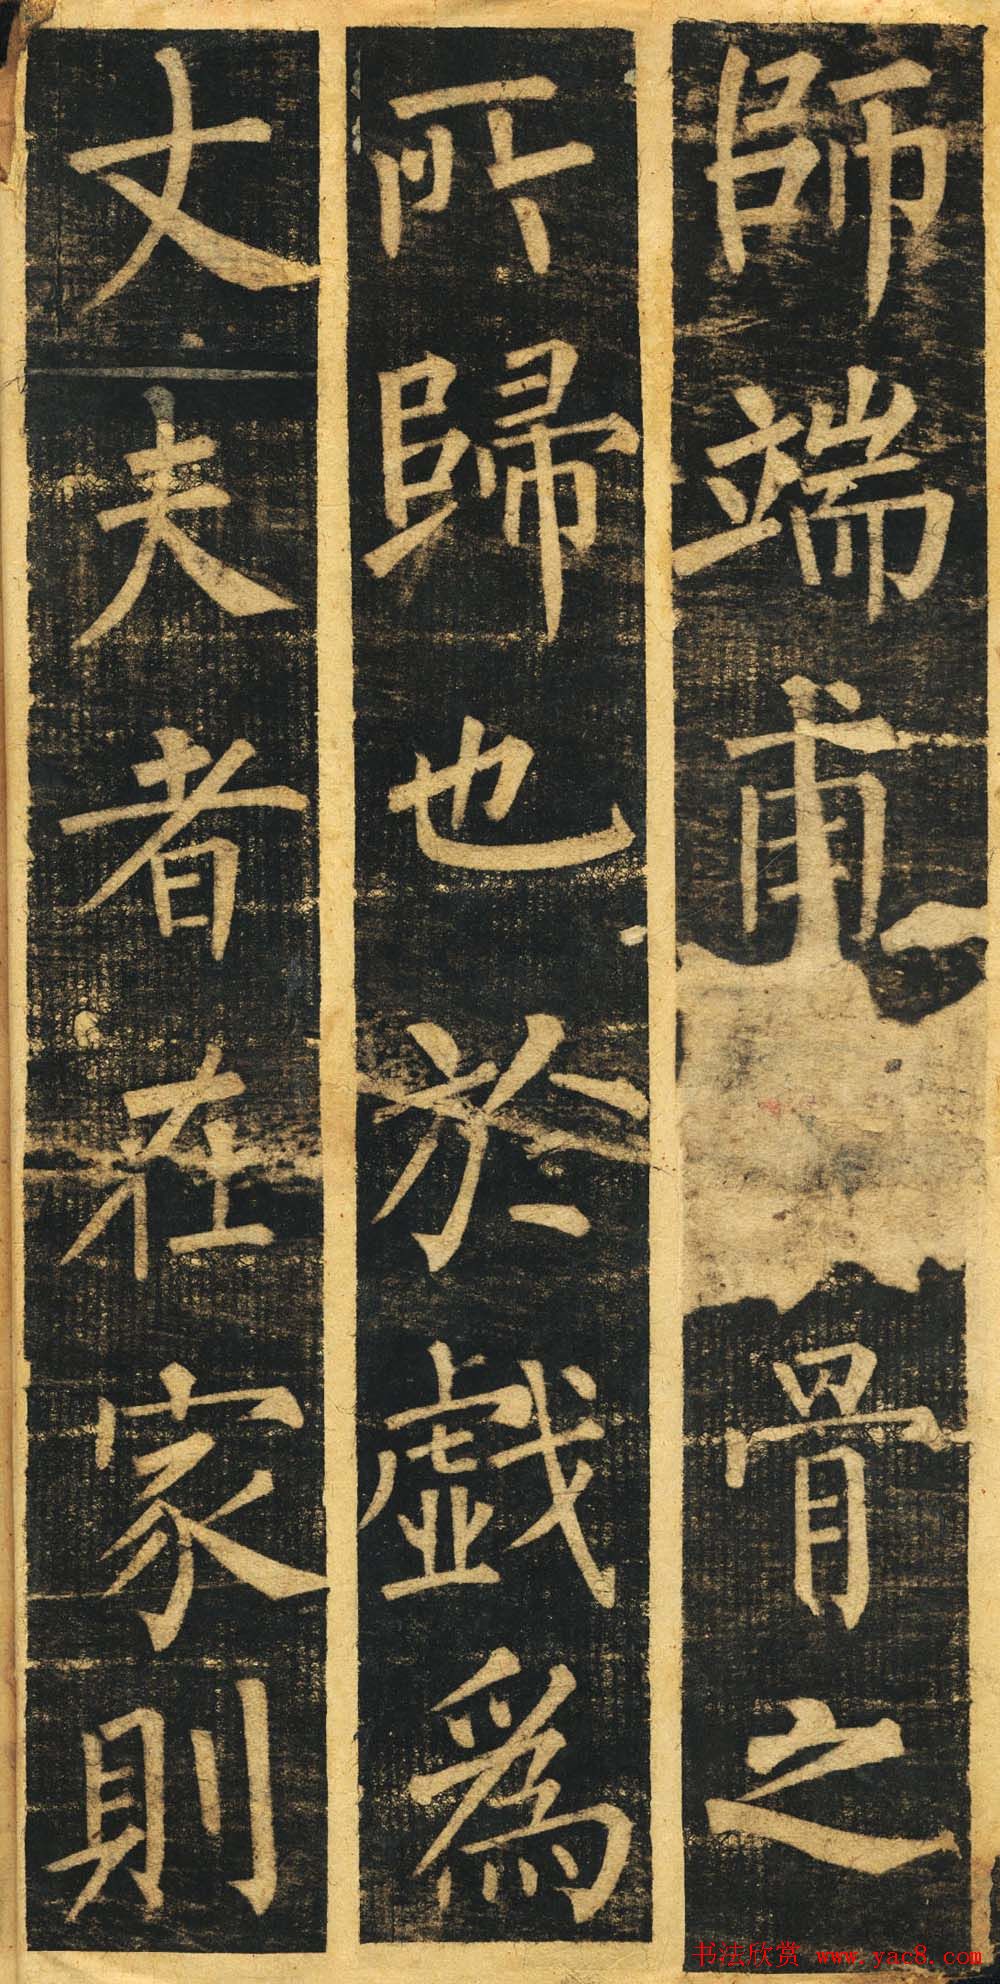 師端甫骨之
所歸也於戲為
丈夫者在家則
书法欣赏 www.yac8.com